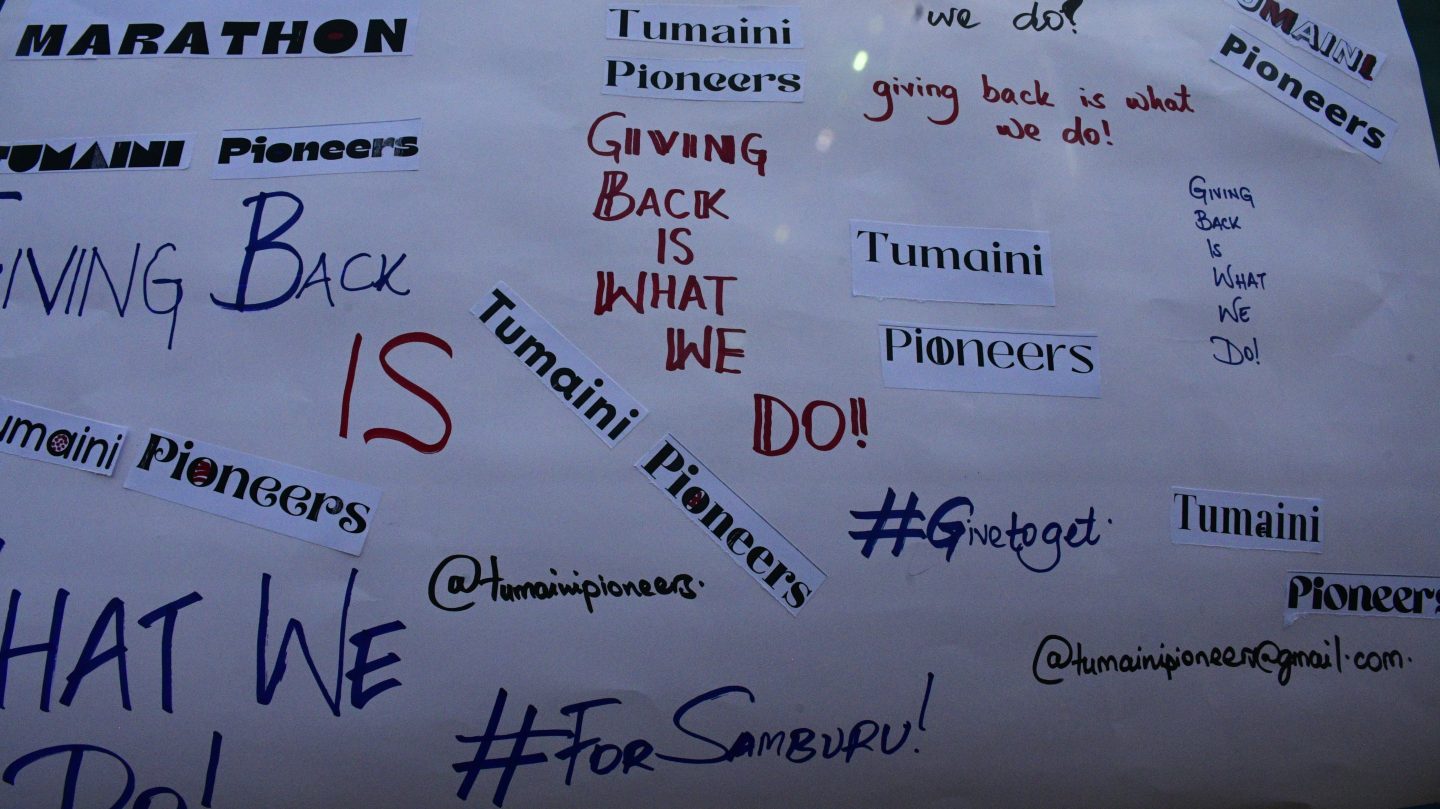 MARATHON
TUMAINI Pioneers
GIVING BACK
IS
Tumaini Pioneers
WHAT WE
DO!
Tumaini
Pioneers
GIVING
BACK
IS
WHAT
WE
DO!!
Tumaini
Pioneers
@tumainipioneers.
#ForSamburu!
we do!
giving back is what
we do!
Tumaini
Pioneers
#Givetoget.
TUMAINI
Pioneers
GIVING
BACK
IS
WHAT
WE
DO!
Tumaini
Pioneers
@tumainipioneers@gmail.com.